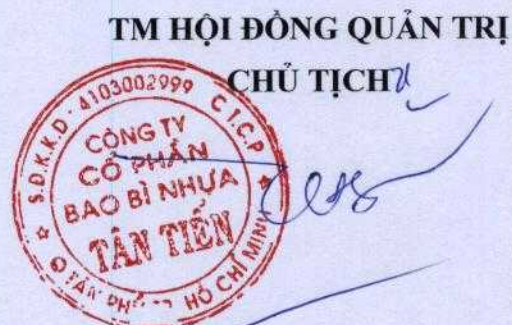 TM HỘI ĐỒNG QUẢN TRỊ
CHỦ TỊCH
S.D.K.K.D: 4103002999 C.T.C.P
CÔNG TY
CỔ PHẦN
BAO BÌ NHỰA
TÂN TIẾN
HỒ CHÍ MINH